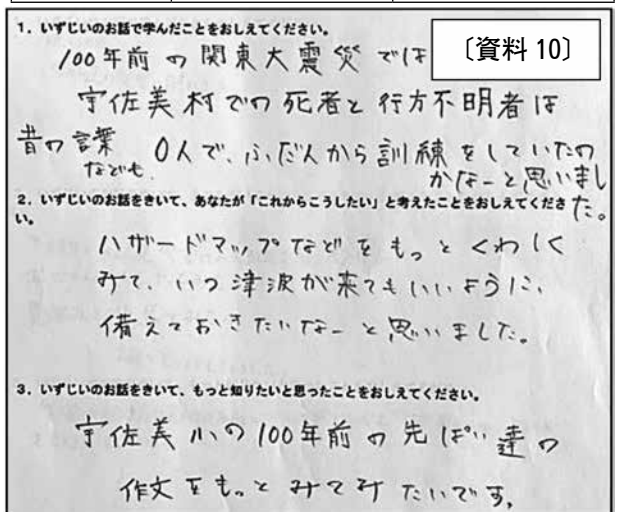 1. いずじいのお話で学んだことをおしえてください。
〔資料 10〕
100年前の関東大震災では
宇佐美村での死者と行方不明者は
昔の言葉なども
0人で、ふだんから訓練をしていたの
かなーと思いました。
2. いずじいのお話をきいて、あなたが「これからこうしたい」と考えたことをおしえてくださ
い。
ハザードマップなどをもっとくわしく
みて、いつ津波が来てもいいように、
備えておきたいなーと思いました。
3. いずじいのお話をきいて、もっと知りたいと思ったことをおしえてください。
宇佐美小の100年前の先ぱい達の
作文をもっとみてみたいです。